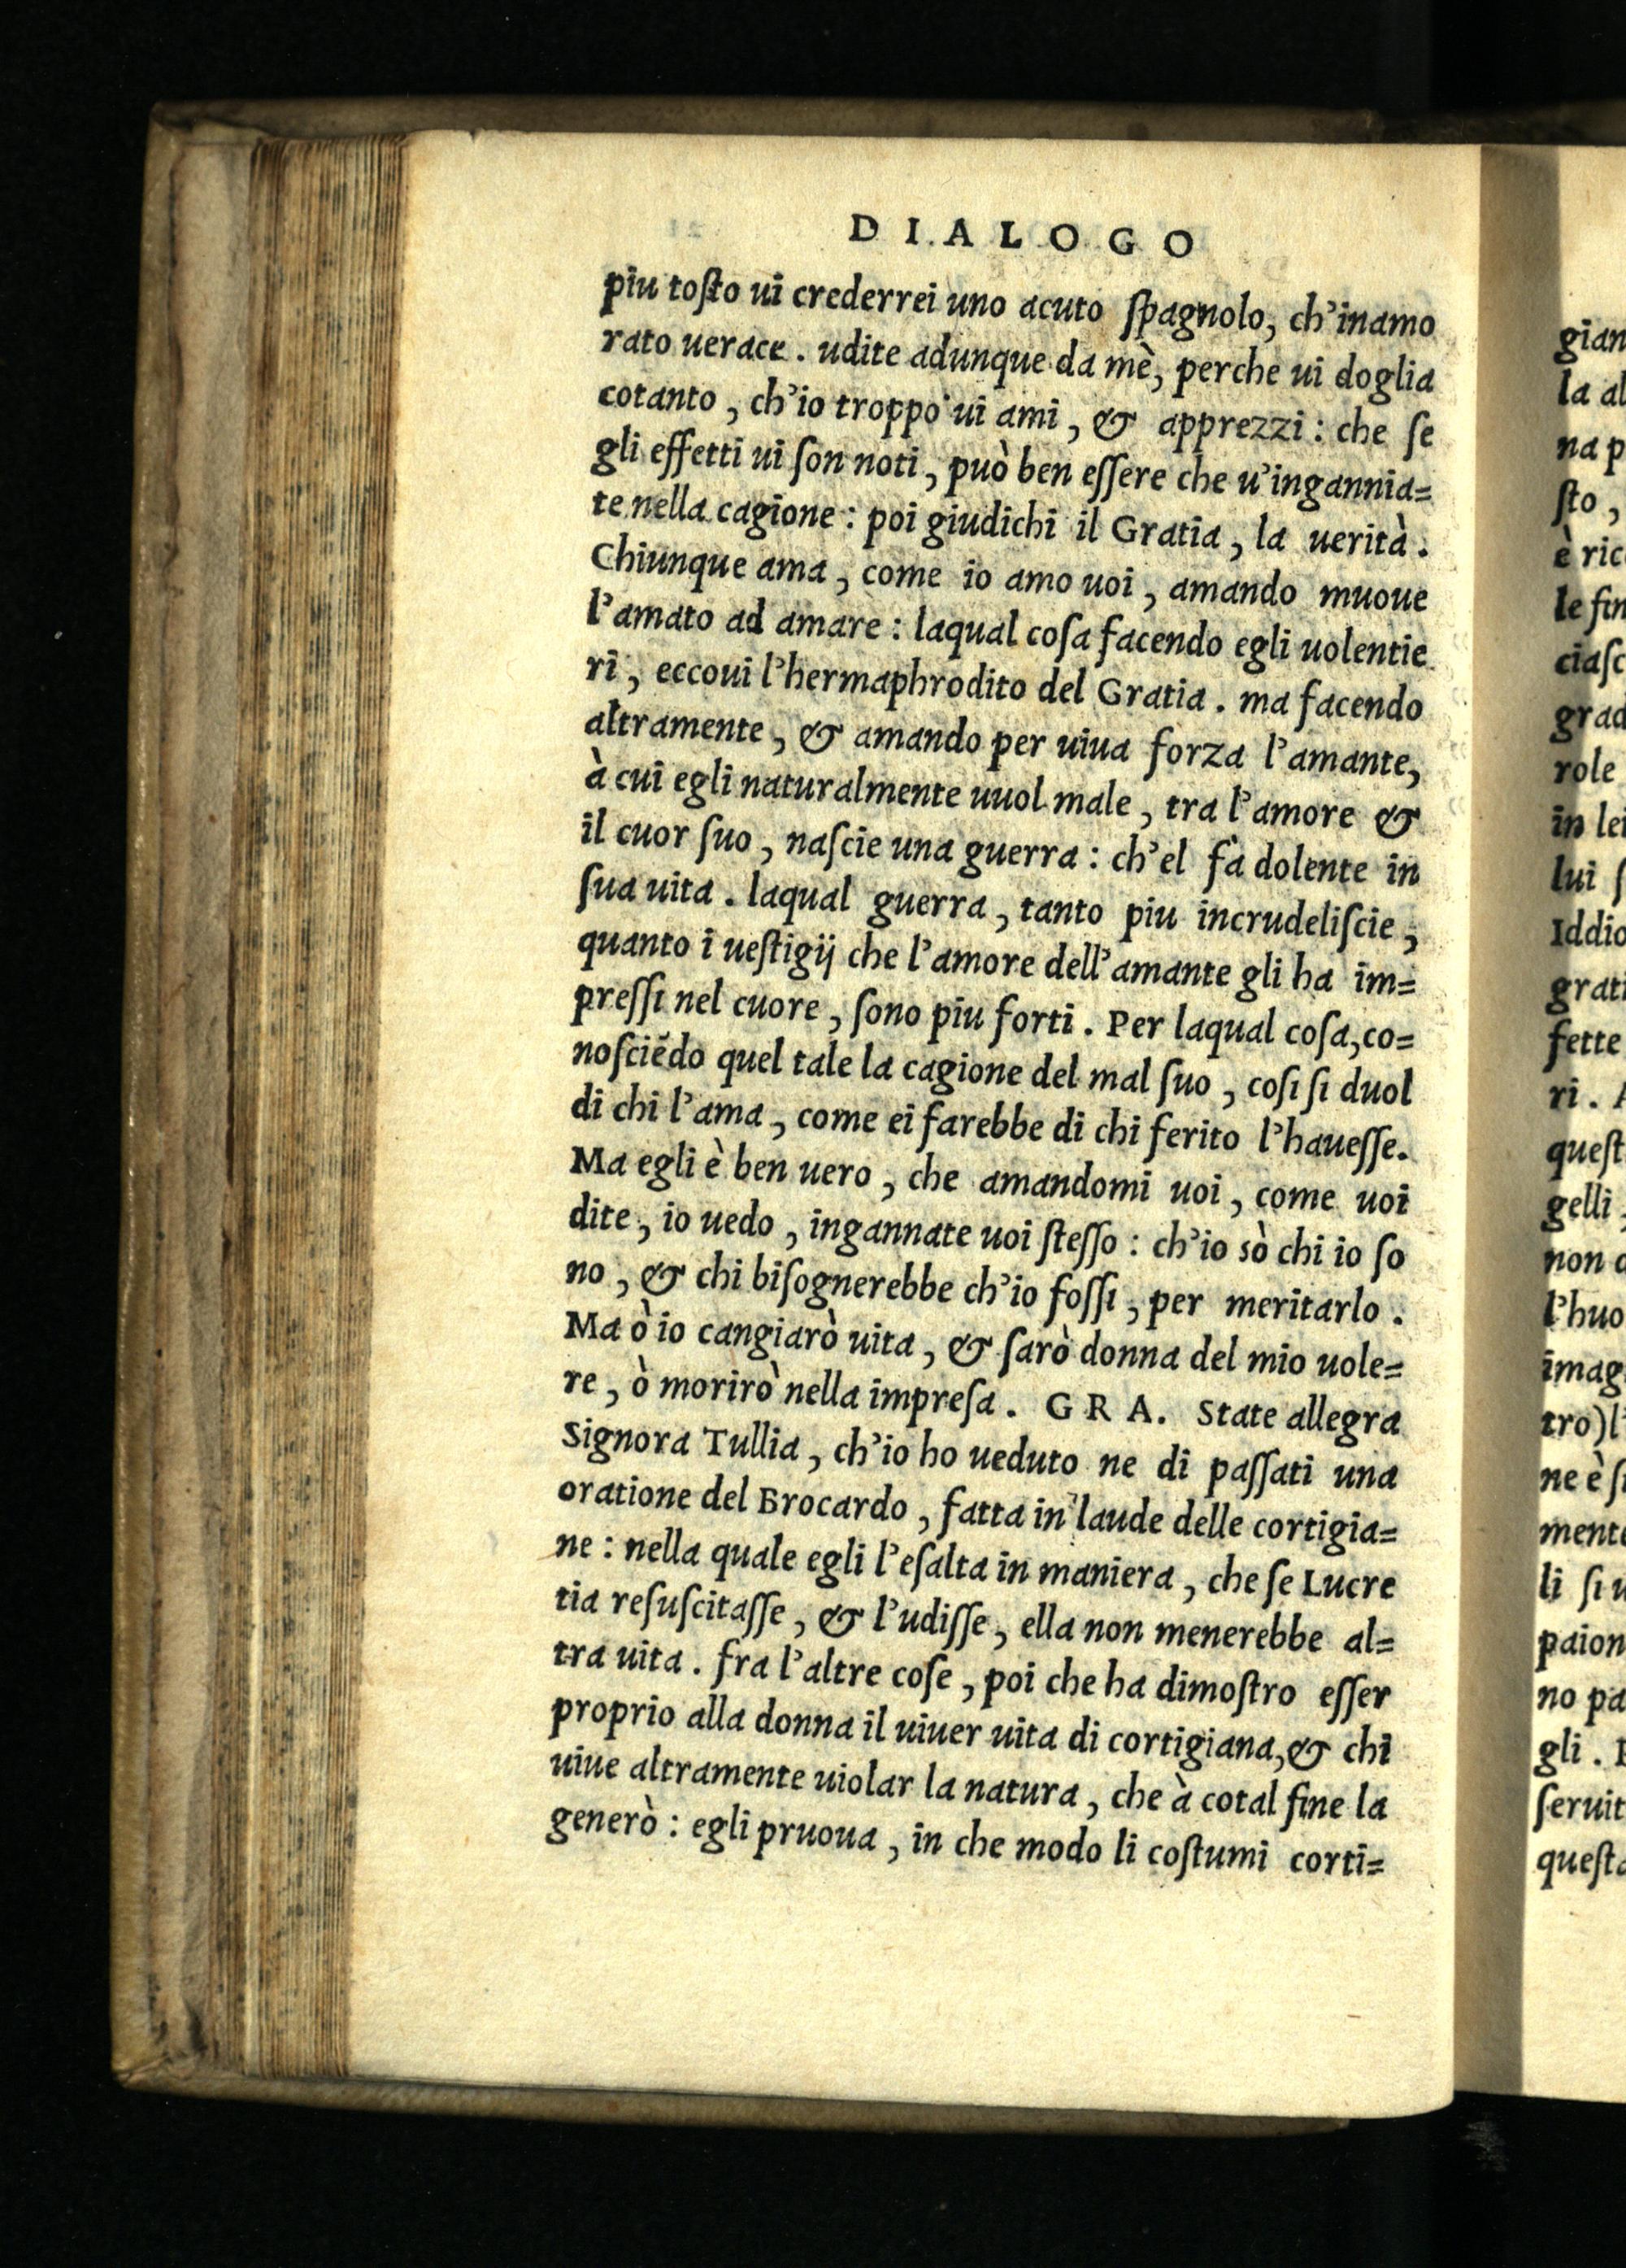 DIALOGO
piu toſto ui crederrei uno acuto ſpagnolo, ch'inamo
rato uerace. udite adunque da mè, perche ui doglia
cotanto, ch'io troppo ui ami, & apprezzi: che ſe
gli effetti ui ſon noti, può ben eſſere che u'ingannia=
te nella cagione: poi giudichi il Gratia, la uerità.
Chiunque ama, come io amo uoi, amando muoue
l'amato ad amare: laqual coſa facendo egli uolentie
ri, eccoui l'hermaphrodito del Gratia. ma facendo
altramente, & amando per uiua forza l'amante,
à cui egli naturalmente uuol male, tra l'amore &
il cuor ſuo, naſcie una guerra: ch'el fà dolente in
ſua uita. laqual guerra, tanto piu incrudeliſcie,
quanto i ueſtigij che l'amore dell'amante gli ha im=
preſſi nel cuore, ſono piu forti. Per laqual coſa, co=
noſciẽdo quel tale la cagione del mal ſuo, coſi ſi duol
di chi l'ama, come ei farebbe di chi ferito l'haueſſe.
Ma egli è ben uero, che amandomi uoi, come uoi
dite, io uedo, ingannate uoi ſteſſo: ch'io sò chi io ſo
no, & chi biſognerebbe ch'io foſſi, per meritarlo.
Ma ò io cangiarò uita, & ſarò donna del mio uole=
re, ò morirò nella impreſa. GRA. State allegra
Signora Tullia, ch'io ho ueduto ne di paſſati una
oratione del Brocardo, fatta in laude delle cortigia=
ne: nella quale egli l'eſalta in maniera, che ſe Lucre
tia reſuſcitaſſe, & l'udiſſe, ella non menerebbe al=
tra uita. fra l'altre coſe, poi che ha dimoſtro eſſer
proprio alla donna il uiuer uita di cortigiana, & chi
uiue altramente uiolar la natura, che à cotal fine la
generò: egli pruoua, in che modo li coſtumi corti=
gian
la al
na p
ſto,
è ric
le fin
ciaſc
grad
role
in lei
lui ſ
Iddio
grati
fette
ri. A
queſt
gelli,
non
l'huo
imag
tro) l'
ne è ſi
mente
li ſi u
paion
no pa
gli.
ſeruit
queſta